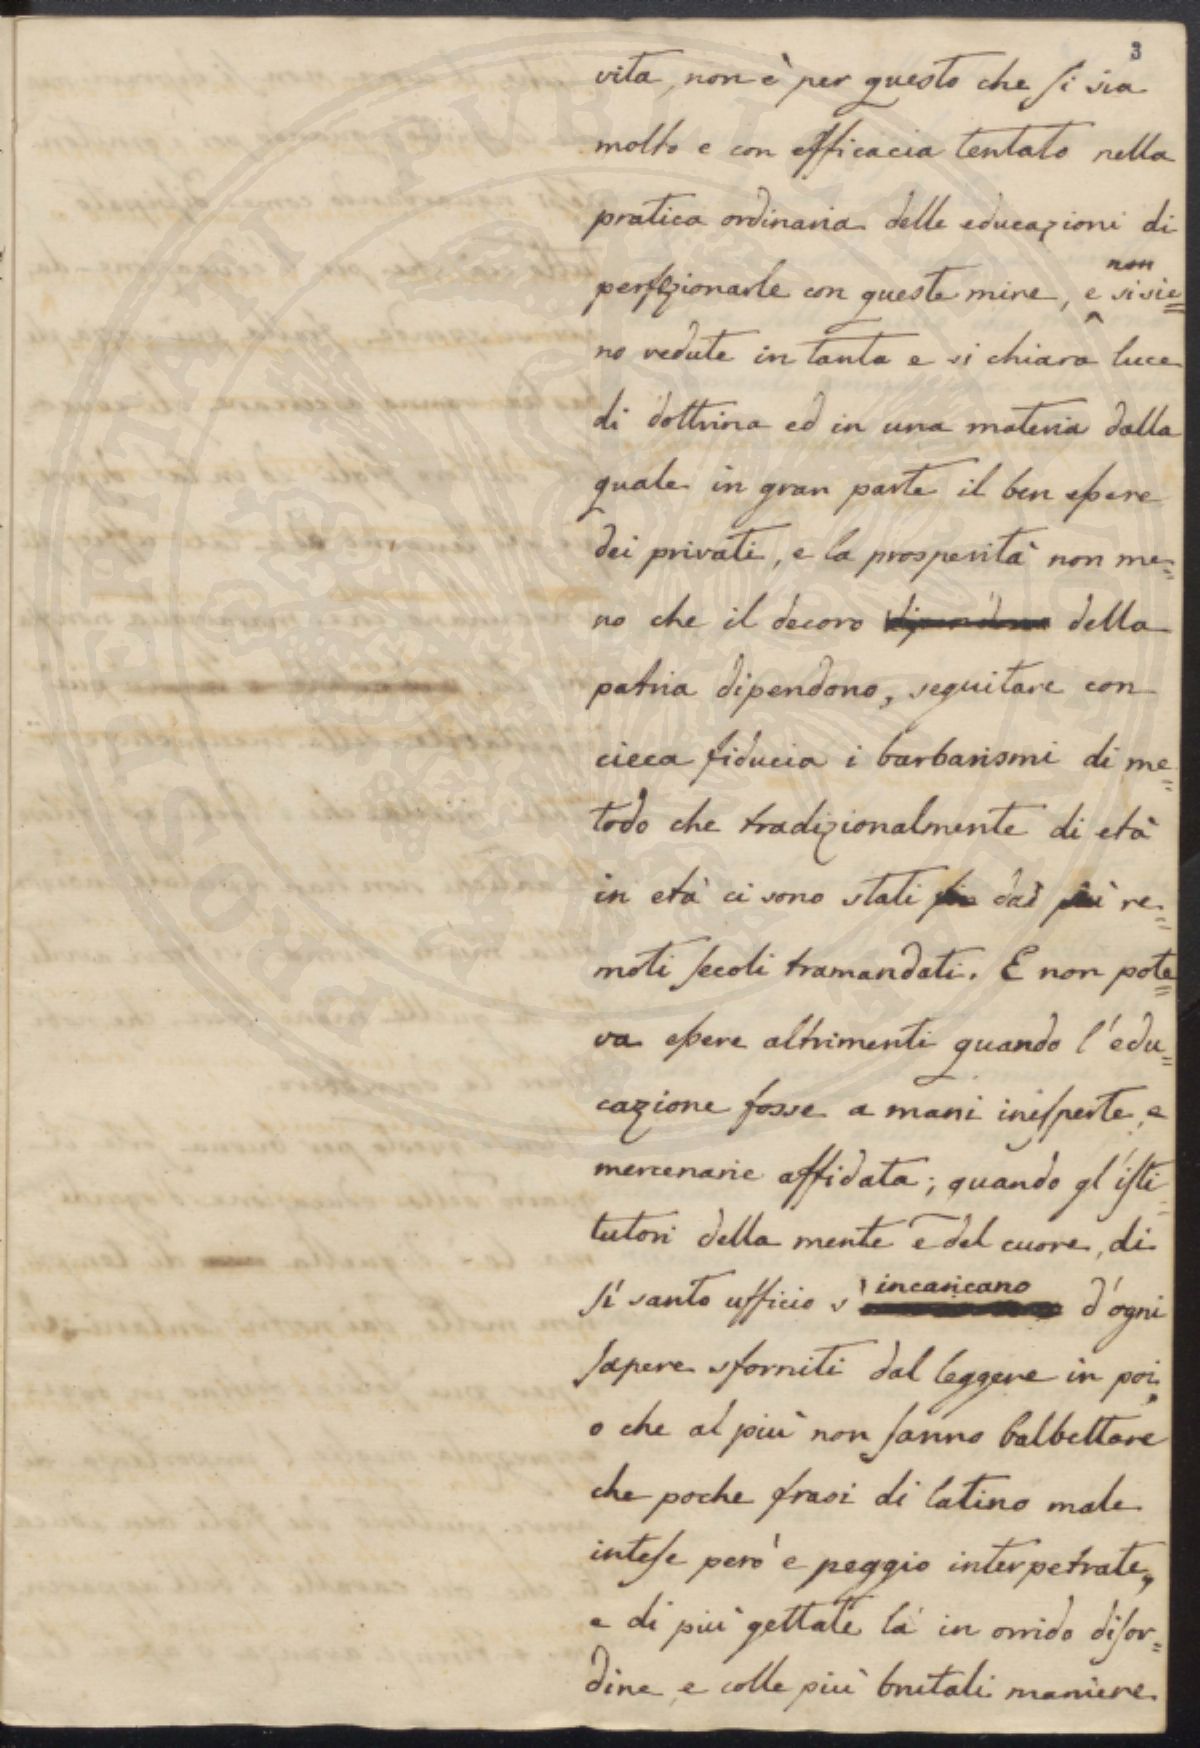 3
vita, non è per questo che si sia
molto e con efficacia tentato nella
pratica ordinaria delle educazioni di
perfezionarle con queste mire, e non si sie=
no vedute in tanta e si chiara luce
di dottrina ed in una materia dalla
quale in gran parte il ben essere
dei privati, e la prosperità non me=
no che il decoro dipendono della
patria dipendono, seguitare con
cieca fiducia i barbarismi di me=
todo che tradizionalmente di età
in età ci sono stati fin dai più re=
moti secoli tramandati. E non pote=
va essere altrimenti quando l'edu=
cazione fosse a mani inisperte, e
mercenarie affidata; quando gl'isti=
tutori della mente e del cuore, di
sì santo ufficio s'incaricano d'ogni
sapere sforniti dal leggere in poi,
o che al più non sanno balbettare
che poche frasi di latino male
intese però e peggio interpetrate,
e di più gettate là in orrido disor=
dine, e colle più brutali maniere